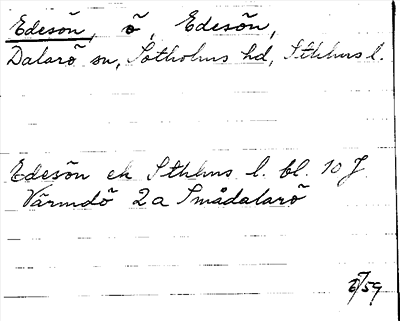 Edesön, ö, Edesön,
Dalarö sn, Sotholms hd, Sthlms l.
Edesön ek Sthlms l. bl. 10 J
Värmdö 2a Smådalarö
6/59